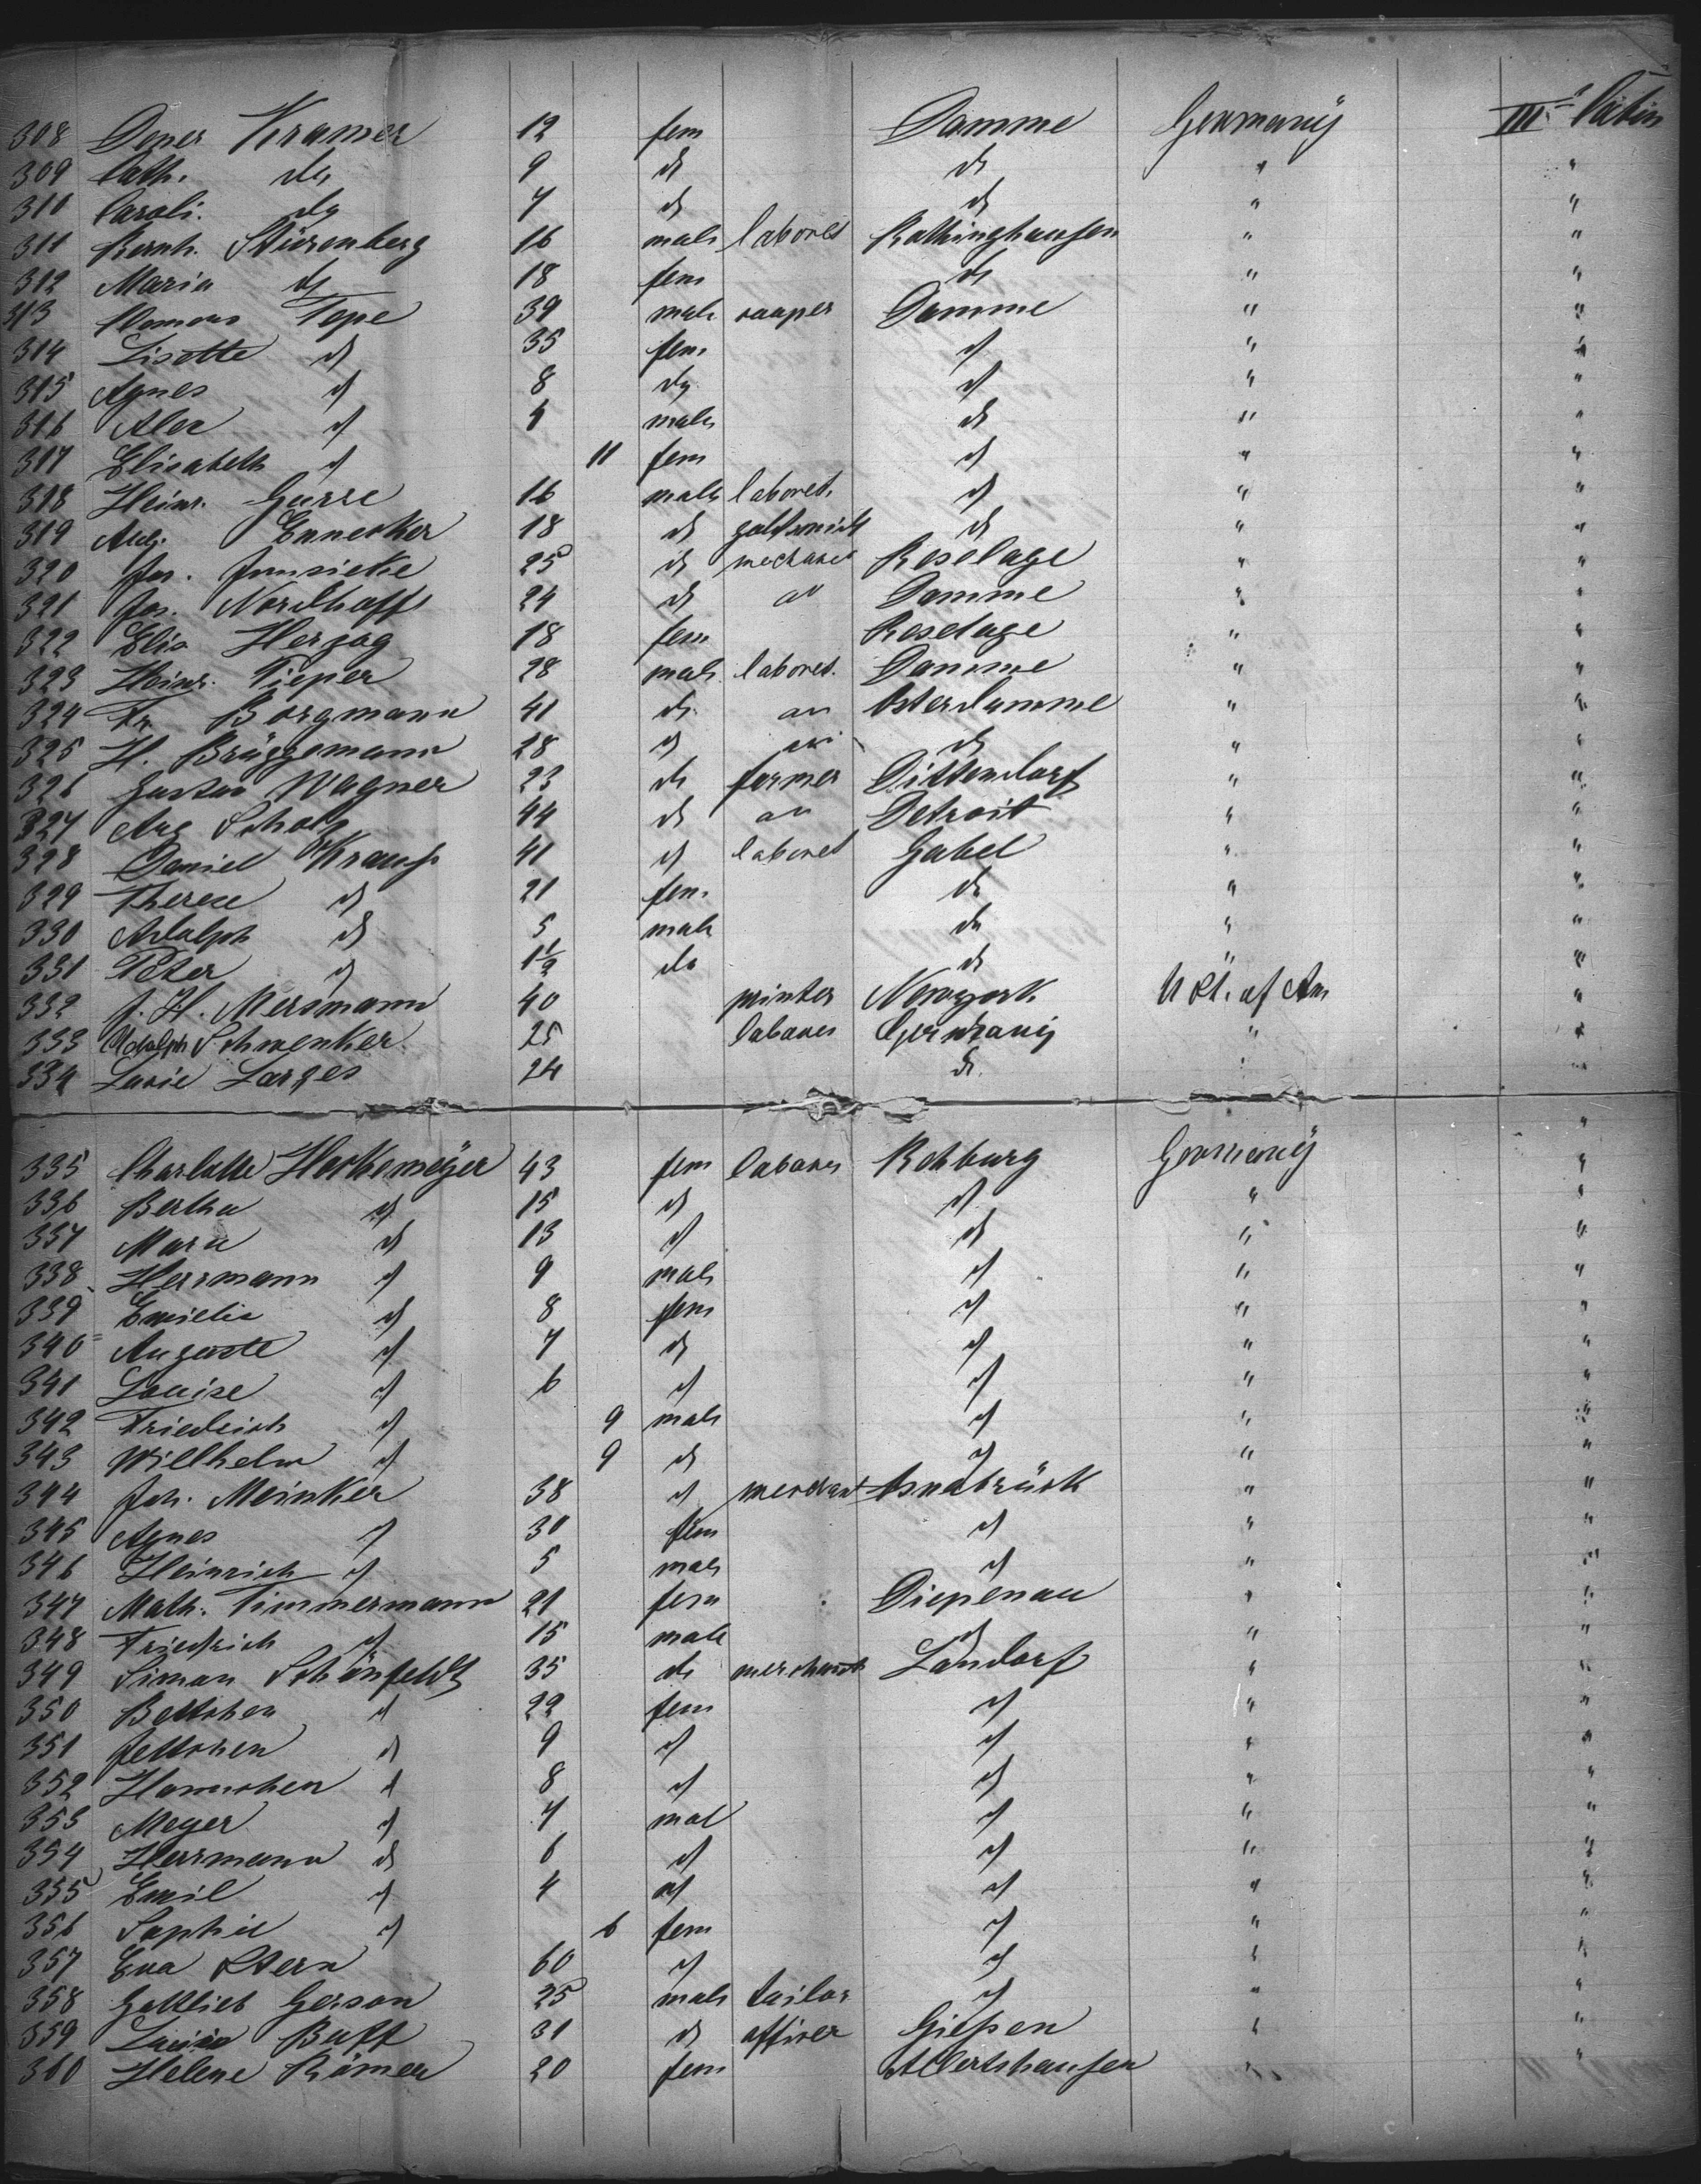 308 Kramer 12 fem Damme Germany III Cabin
309 Cath. do 9 do do " "
310 Caroli. do 7 do do " "
311 Bernh. Stürenberg 16 male laborer " "
312 Maria do 18 fem do " "
313 Tope 39 male Damme " "
314 Lisette do 35 fem do " "
315 Agnes do 8 do do " "
316 Alex do 4 male do " "
317 Elisabeth do 11 fem do " "
318 Heinr. 16 male laborer do " "
319 Aug. Ennecker 18 do goldsmith do " "
320 Jos. 25 do Reselage " "
321 Jos. Nordhoff 24 do do Damme " "
322 Elis Herzog 18 fem Reselage " "
323 Heinr. Pieper 28 male laborer Damme " "
324 Fr. Borgmann 41 do do Osterdamme " "
325 H. Brüggemann 28 do do do " "
326 Gustav Wagner 23 do farmer Dittendorf " "
327 Aug Scholz 44 do do Detroit " "
328 Daniel Krauß 41 do laborer Gabel " "
329 Therese do 21 fem do " "
330 Adolph do 5 male do " "
331 Peter do 1½ do do " "
332 J. H. Mersmann 40 Newyork U St. of Am "
333 Adolph Schwenker 25 laborer Germany " "
334 24 do " "
335 Charlotte 43 fem laborer Rehburg Germany "
336 Bertha do 15 do do " "
337 Maria do 13 do do " "
338 Herrmann do 9 male do " "
339 Emilie do 8 fem do " "
340 Auguste do 7 do do " "
341 Louise do 6 do do " "
342 Friedrich do 9 male do " "
343 Willhelm do 9 do do " "
344 Joh. Meinker 38 do merchant Osnabrück " "
345 Agnes do 30 fem do " "
346 Heinrich do 5 male do " "
347 Math. Timmermann 21 fem Diepenau " "
348 Friedrich do 15 male do " "
349 Simon Schönfeldt 35 do merchant Londorf " "
350 Bettchen do 22 fem do " "
351 Jettchen do 9 do do " "
352 Hannchen do 8 do do " "
353 Meyer do 7 mal do " "
354 Herrmann do 6 do do " "
355 Emil do 4 do do " "
356 Sophie do 6 fem do " "
357 Eva Stern 60 do do " "
358 Gottlieb Gerson 25 male tailor do " "
359 Buff 31 do officer Gießen " "
360 Helene Römer 20 fem Allertshausen " "